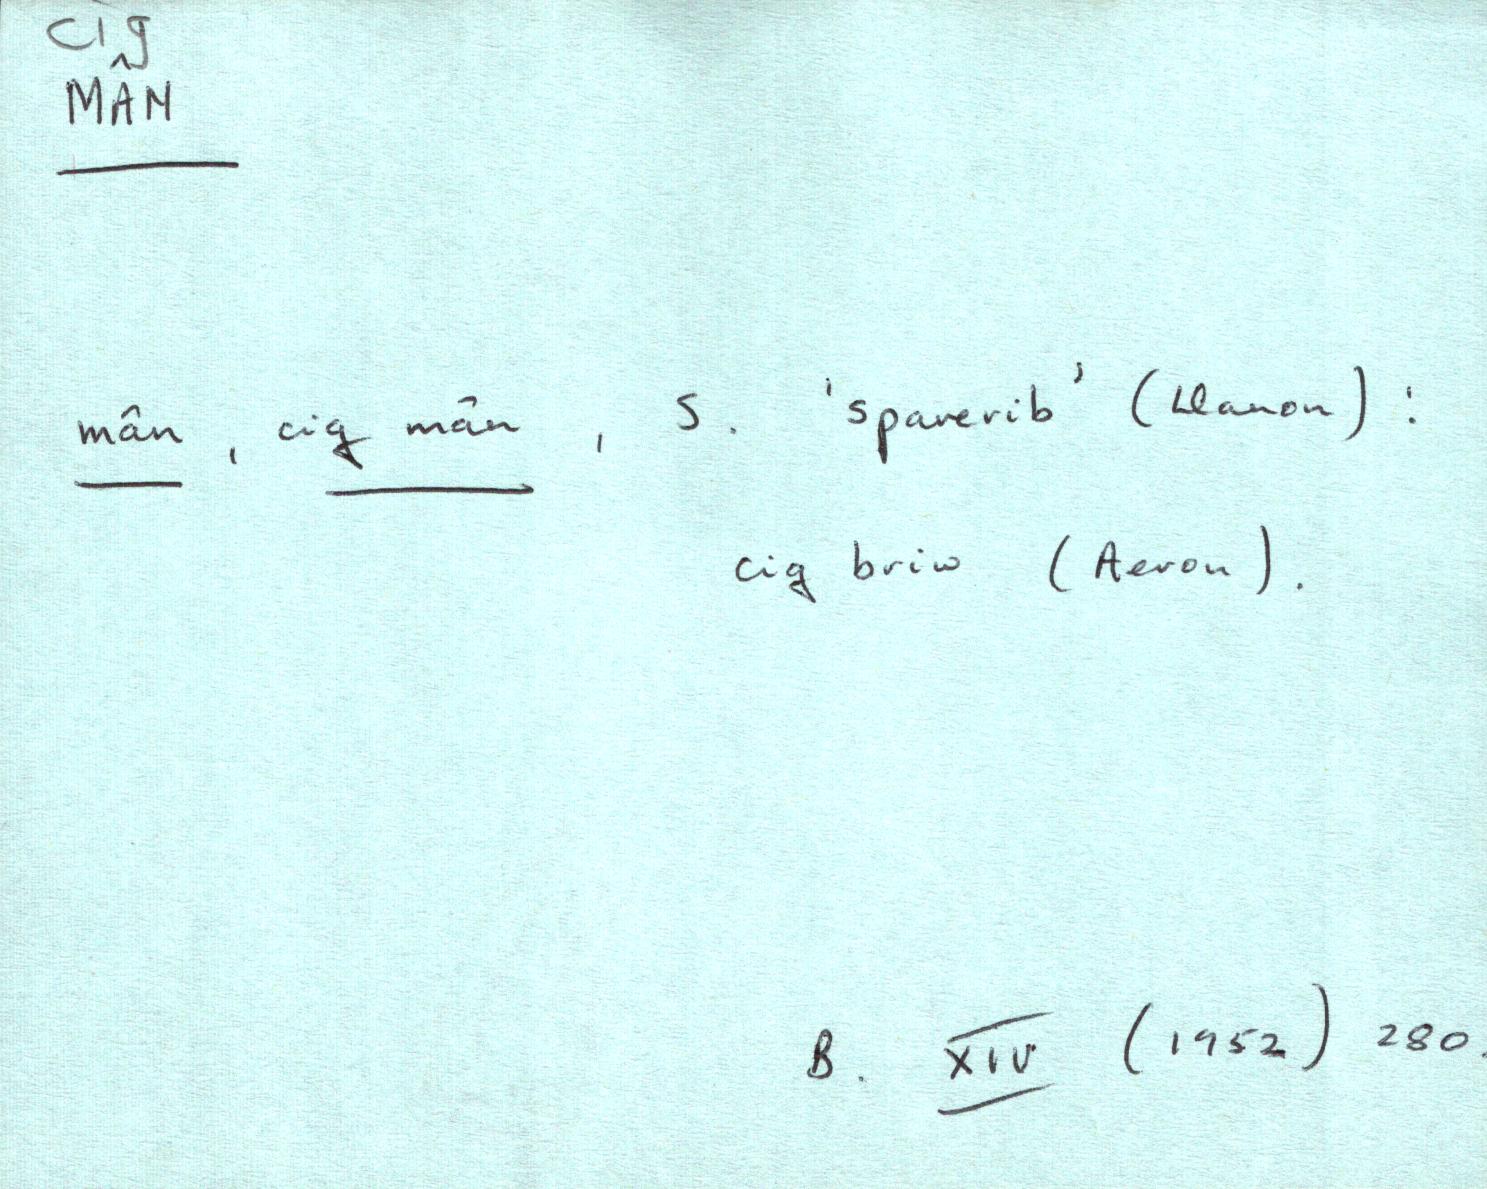 cig
MÂN
mân, cig mân, s. 'sparerib' (Llanon):
cig briw (Aeron).
B. XIV (1952) 280.